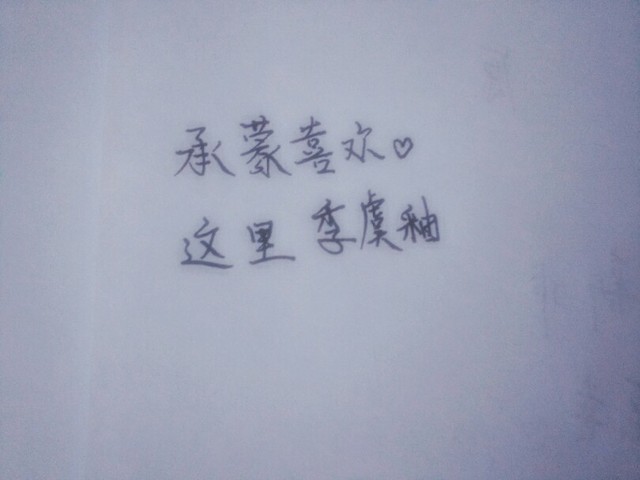 承蒙喜欢♡
这里季虞釉